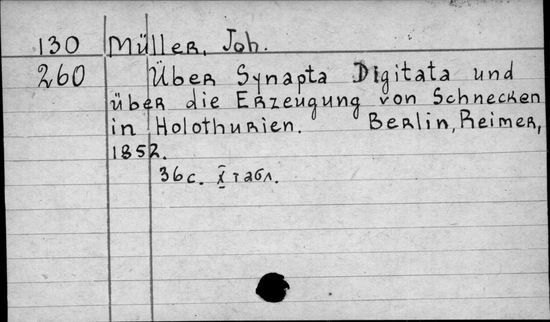 130 Müller, Joh.
260 Über Synapta Digitata und
über die Erzeugung von Schnecken
in Holothurien. Berlin, Reimer,
1852.
36 с. X табл.